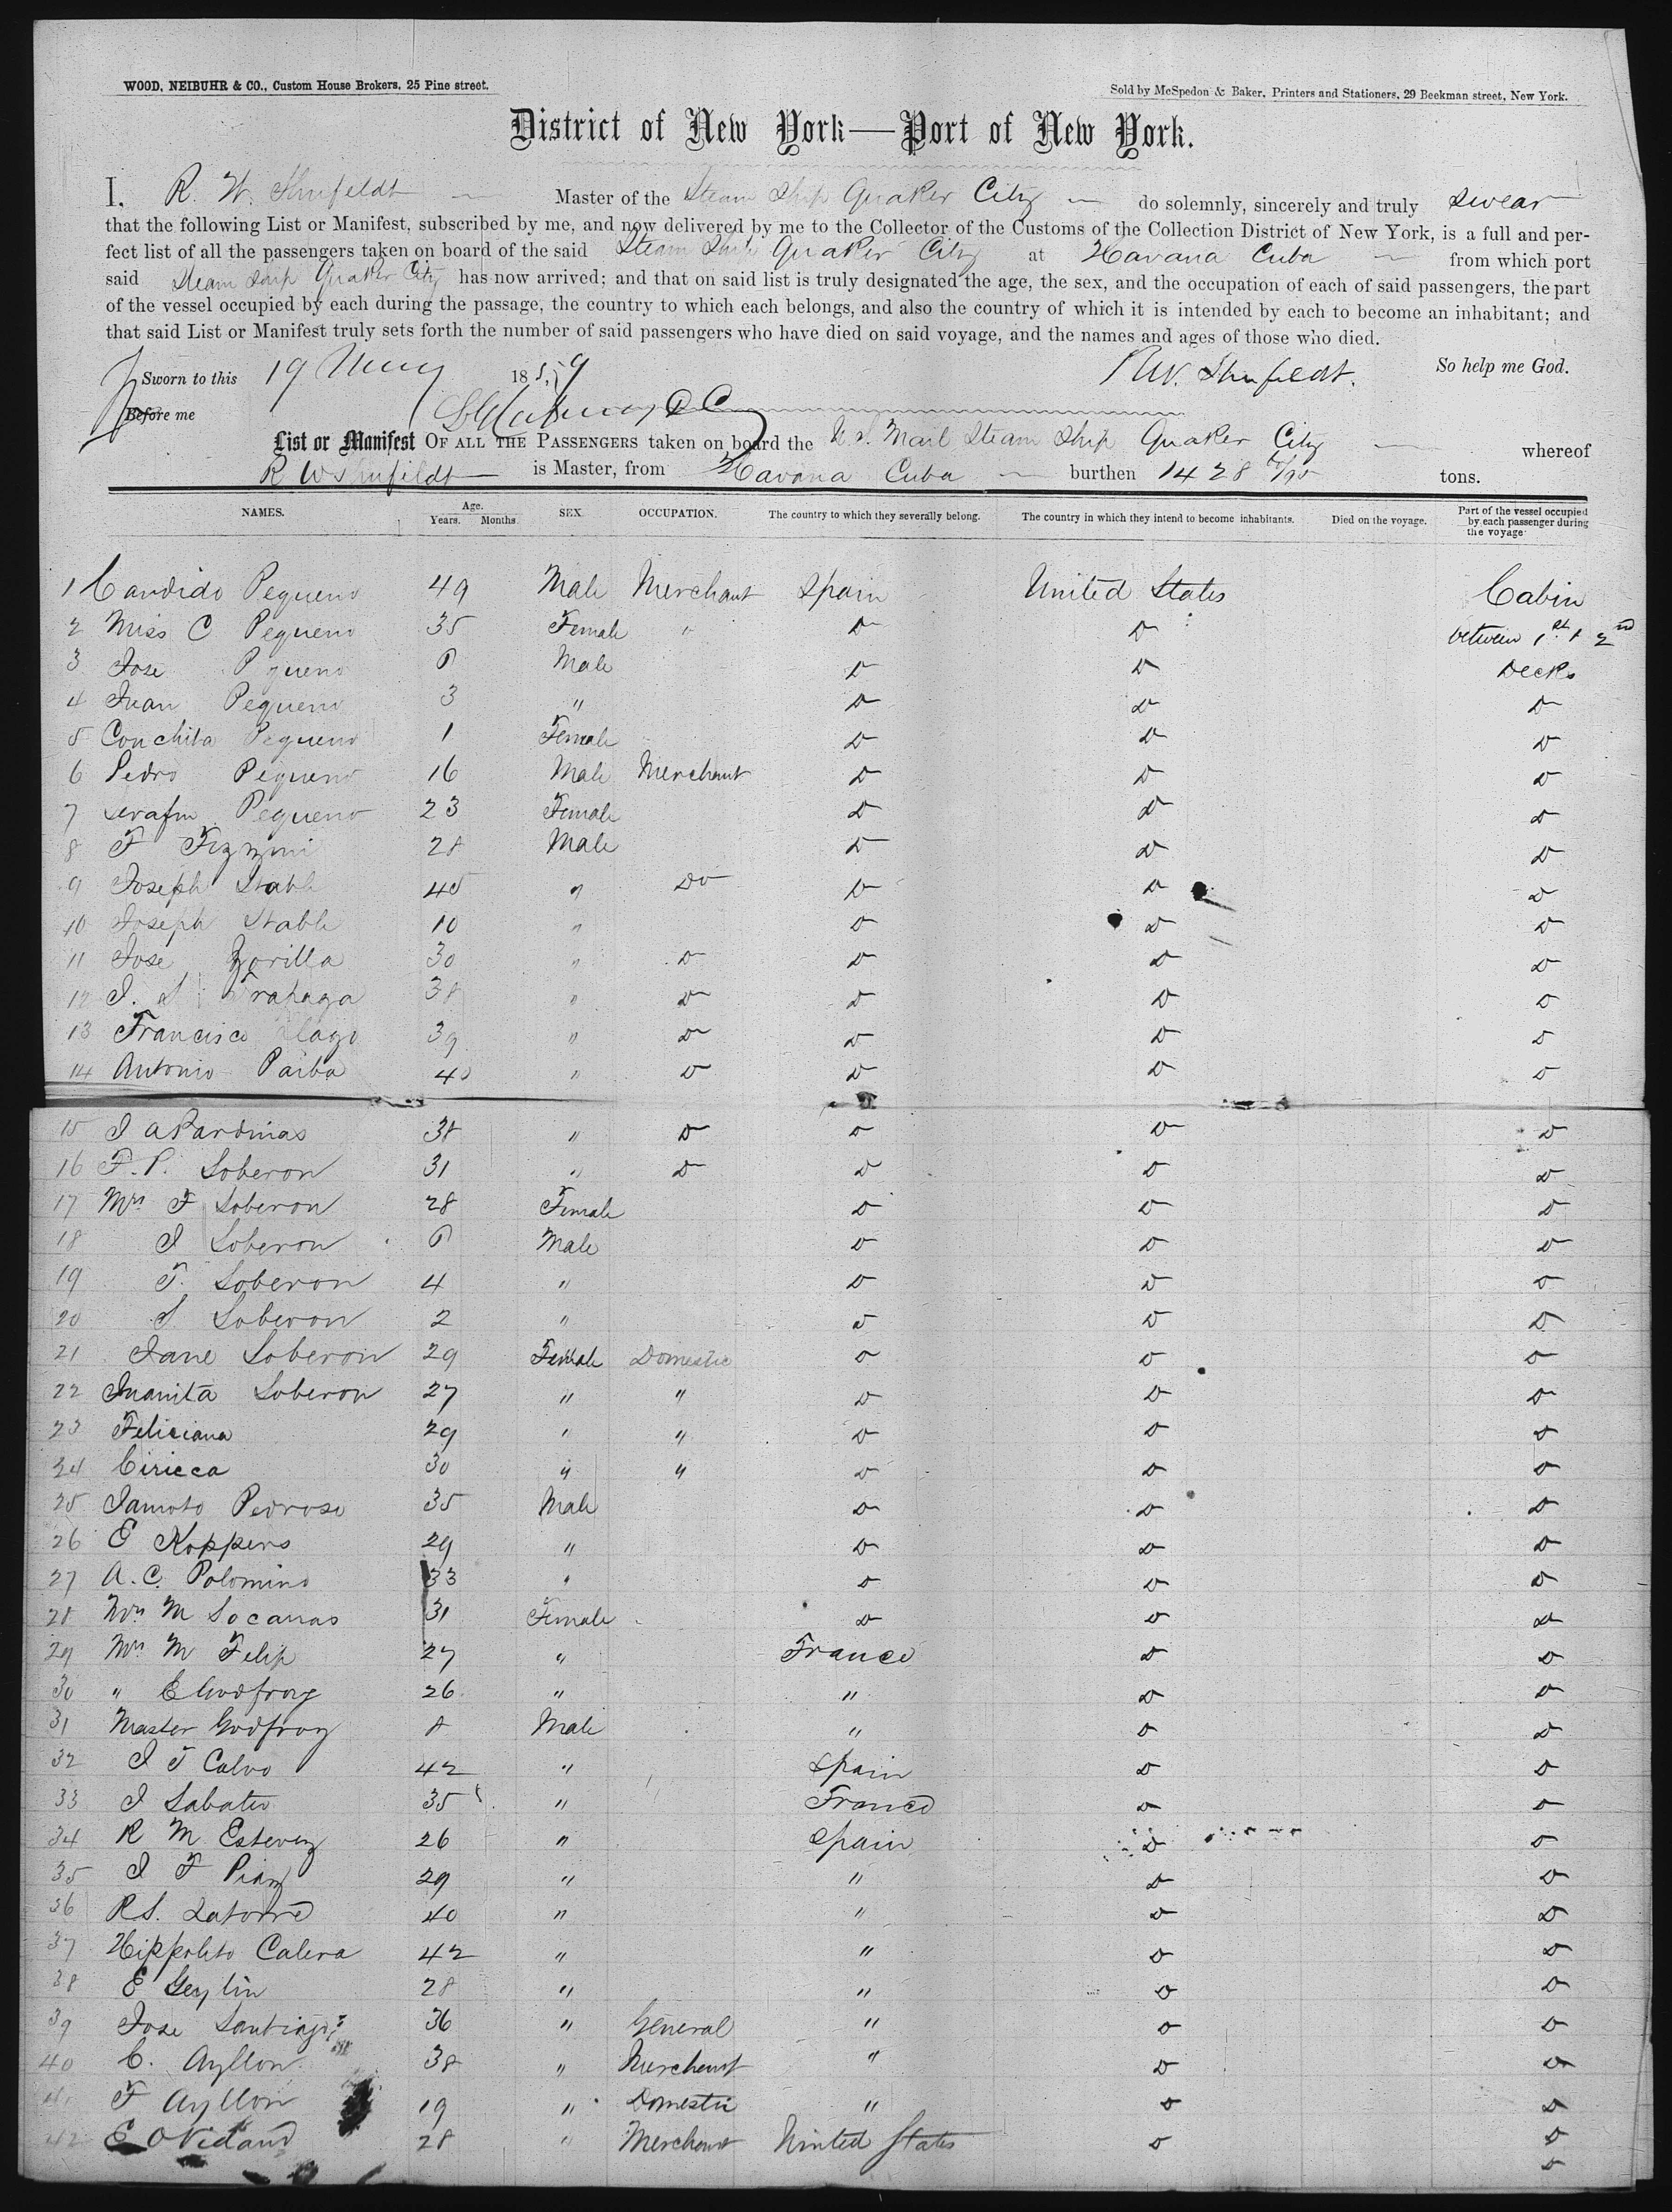 WOOD, NEIBUHR & CO., Custom House Brokers, 25 Pine street.
Sold by McSpedon & Baker, Printers and Stationers, 29 Beekman street, New York.
District of New York—Port of New York.
I, R. W. Shufeldt Master of the Steam Ship Quaker City do solemnly, sincerely and truly swear
that the following List or Manifest, subscribed by me, and now delivered by me to the Collector of the Customs of the Collection District of New York, is a full and per-
fect list of all the passengers taken on board of the said Steam Ship Quaker City at Havana Cuba from which port
said Steam Ship Quaker City has now arrived; and that on said list is truly designated the age, the sex, and the occupation of each of said passengers, the part
of the vessel occupied by each during the passage, the country to which each belongs, and also the country of which it is intended by each to become an inhabitant; and
that said List or Manifest truly sets forth the number of said passengers who have died on said voyage, and the names and ages of those who died.
Sworn to this 19 May 1859 R W. Shufeldt. So help me God.
Before me
List or Manifest OF ALL THE PASSENGERS taken on board the U.S. Mail Steam Ship Quaker City whereof
R W Shufeldt is Master, from Havana Cuba burthen 1428 tons.
NAMES. Age. Years. Months. SEX. OCCUPATION. The country to which they severally belong. The country in which they intend to become inhabitants. Died on the voyage. Part of the vessel occupied by each passenger during the voyage
1 Candido Pequeno 49 Male Merchant Spain United States Cabin
2 Miss C Pequeno 35 Female " Do Do between 1st & 2nd
3 Jose Pequeno 6 Male Do Do Decks
4 Juan Pequeno 3 " Do Do Do
5 Conchita Pequeno 1 Female Do Do Do
6 Pedro Pequeno 16 Male Merchant Do Do Do
7 Serafin Pequeno 23 Female Do Do Do
8 F 28 Male Do Do Do
9 Joseph Stable 45 " Do Do Do Do
10 Joseph Stable 10 " Do Do Do
11 Jose Zorilla 30 " Do Do Do Do
12 J. S Trapaga 38 " Do Do Do Do
13 Francisco Lago 39 " Do Do Do Do
14 Antonio Paiba 40 " Do Do Do Do
15 J A Pardinas 38 " Do Do Do Do
16 F. P. Soberon 31 " Do Do Do Do
17 Mrs F Soberon 28 Female Do Do Do
18 J Soberon 6 Male Do Do Do
19 F. Soberon 4 " Do Do Do
20 S Soberon 2 " Do Do Do
21 Jane Soberon 29 Female Domestic Do Do Do
22 Juanita Soberon 27 " " Do Do Do
23 Feliciana 29 " " Do Do Do
24 Ciricca 30 " " Do Do Do
25 Pedroso 35 Male Do Do Do
26 E Koppers 29 " Do Do Do
27 A. C. Polomino 33 " Do Do Do
28 Mrs M Socarras 31 Female Do Do Do
29 Mrs M Felip 27 " France Do Do
30 " E Godfroy 26 " " Do Do
31 Master Godfroy 8 Male " Do Do
32 J T Calvo 42 " Spain Do Do
33 J Sabater 35 " France Do Do
34 R M Estevez 26 " Spain Do Do
35 J F 29 " " Do Do
36 R S. Latorre 40 " " Do Do
37 Hippolito Calera 42 " " Do Do
38 E 28 " " Do Do
39 Jose Santiago 36 " General " Do Do
40 C. Ayllon 38 " Merchant " Do Do
41 F Ayllon 19 " Domestic " Do Do
42 E 28 " Merchant United States Do Do
Do